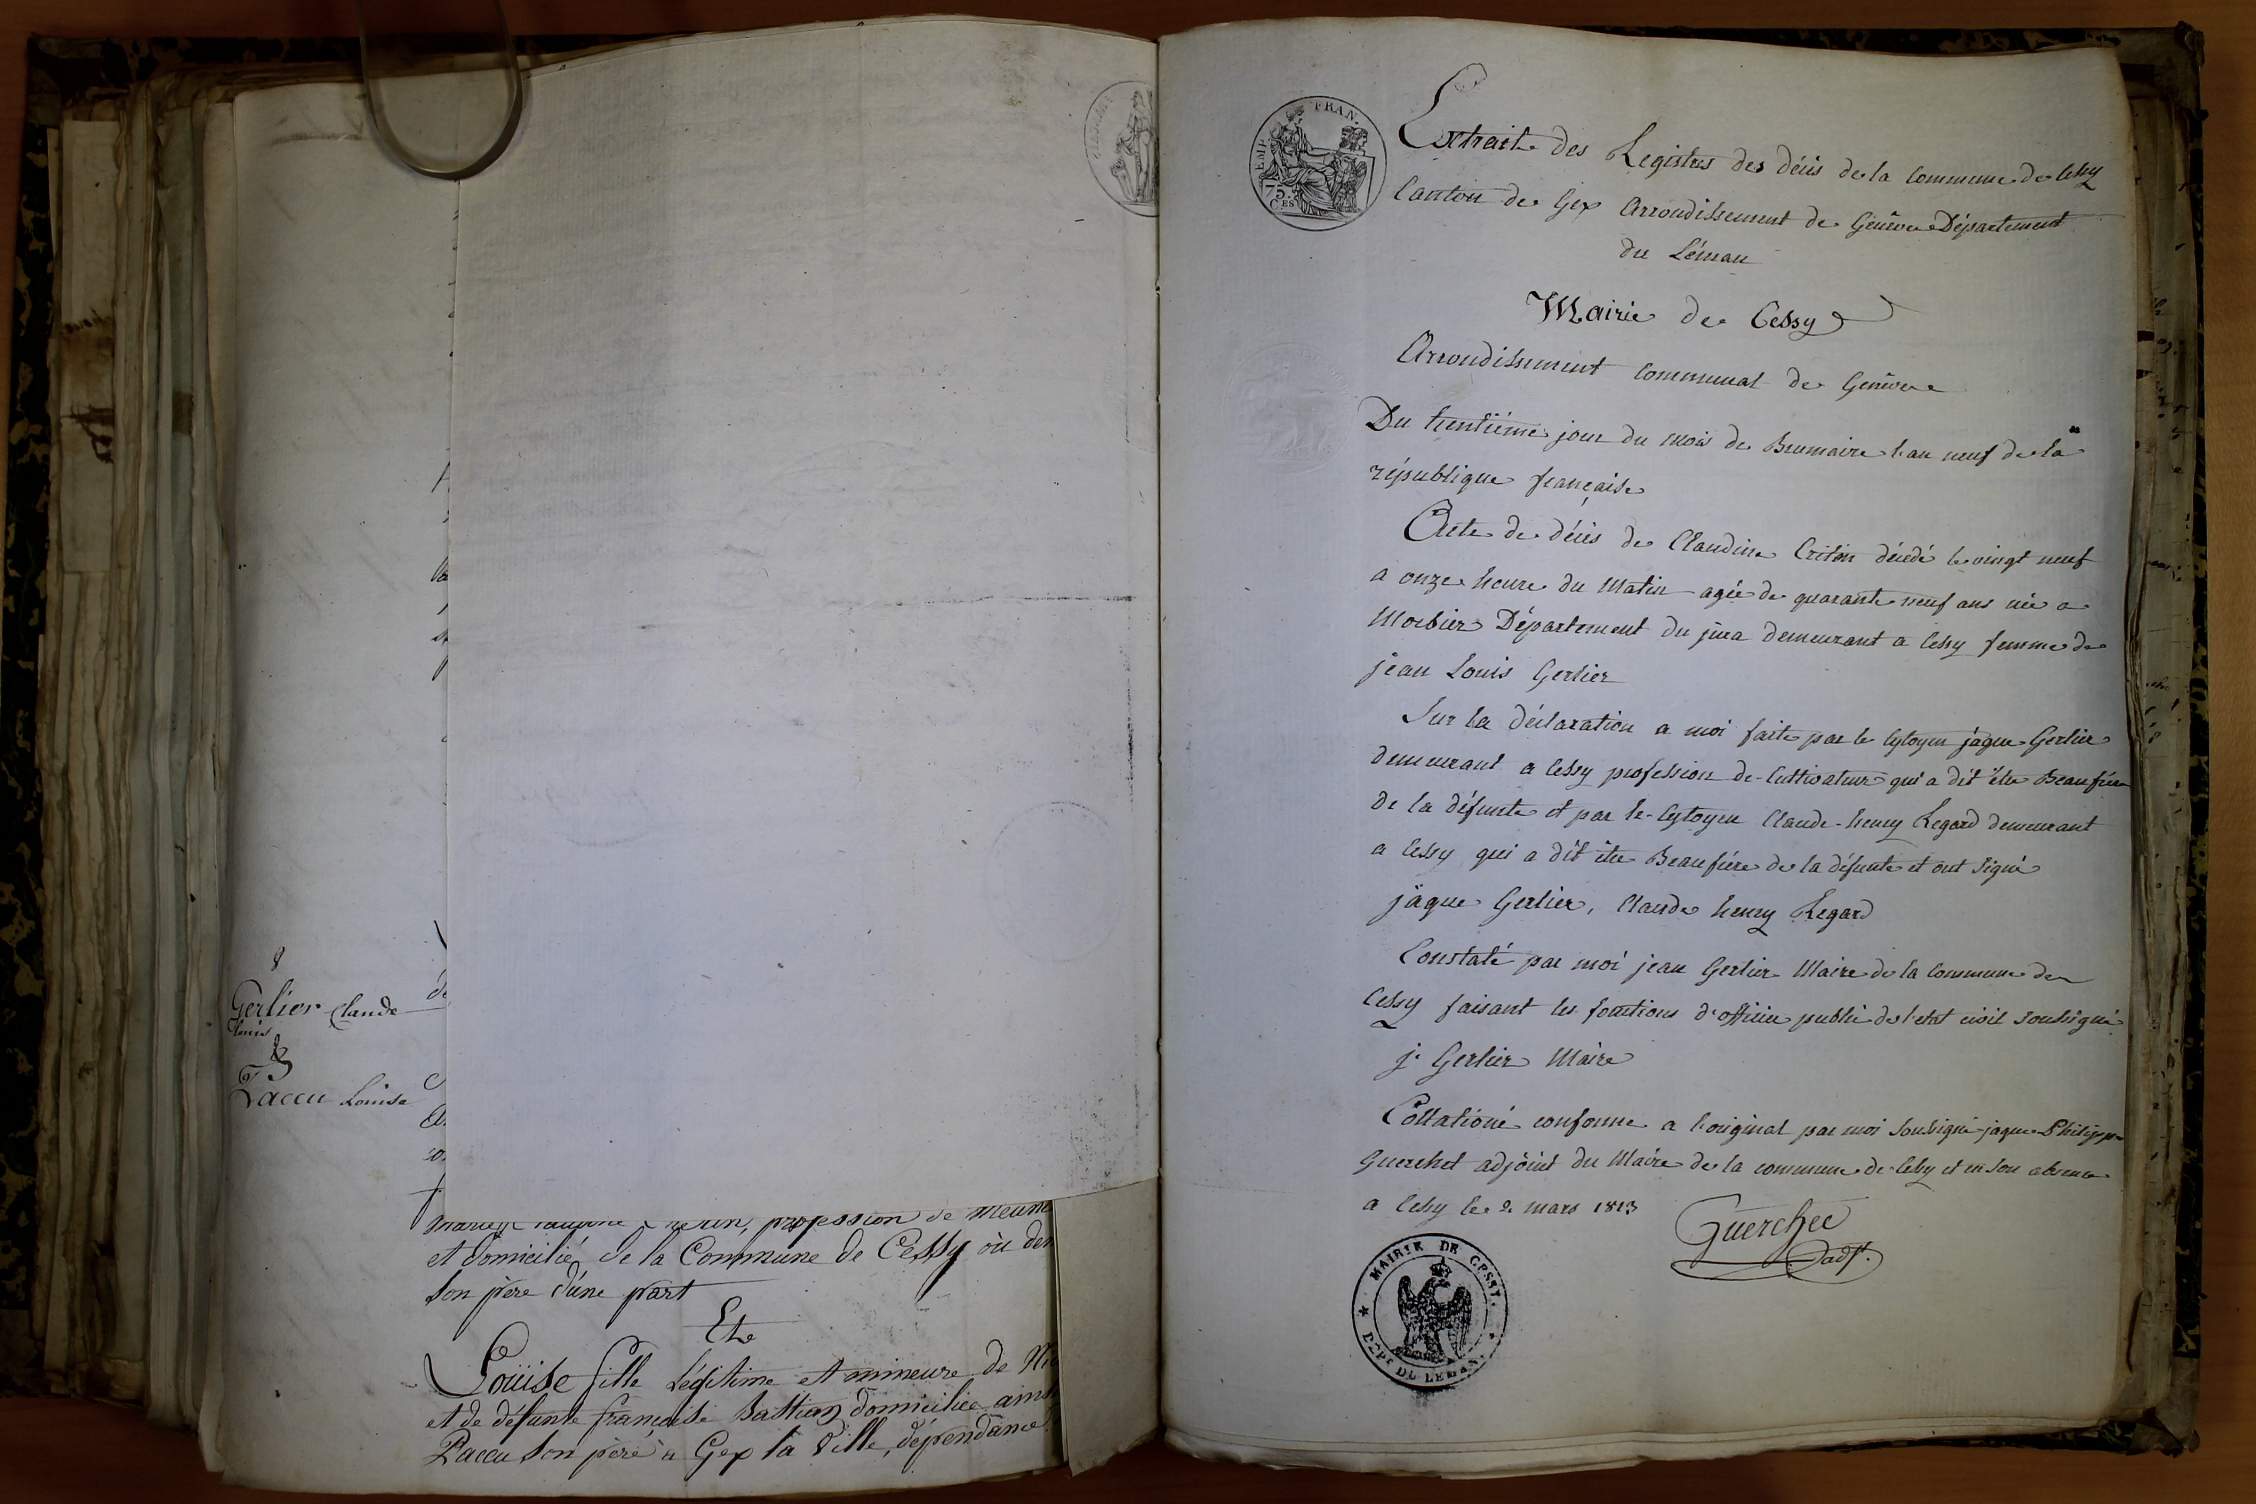 Gerlier Claude
Louis
&
Paccu Louise
profession de meune
et domicilié de la Commune de Cessy où dem
son père d'une part
Et
Loüise fille légitime et mineure de
et de défunte françoise Bastian domiciliée ains
Paccu son père à Gex la Ville, dépendance
EMP. FRAN.
75
CES
Extrait des Registres des décès de la commune de Cessy
Canton de Gex Arrondissement de Genêve Département
du Léman
Mairie de Cessy
Arrondissement communal de Genêve
Du trentième jour du mois de Brumaire l'an neuf de la
république française
Acte de décès de Claudine Critin décédé le vingt neuf
a onze heure du matin agée de quarante neuf ans née a
Morbier Département du jura demeurant a Cessy femme de
jean Louis Gerlier
Sur la déclaration a moi faite par le Cytoyen jâque Gerlier
demeurant a Cessy profession de Cultivateur qui a dit être Beaufrère
de la défunte et par le Cytoyen Claude-henry Regard demeurant
a Cessy qui a dit être Beaufrère de la défunte et ont signé
jâque Gerlier, Claude henry Regard
Constaté par moi jean Gerlier Maire de la Commune de
Cessy faisant les fonctions d'officier public de l'etat civil soussigné
j. Gerlier Maire
Collationé conforme a l'original par moi soussigné jaque Philippe
Guerchet adjoint du Maire de la commune de Cessy et en son absence
a Cessy le 2 mars 1813
Guerchet
adjt.
MAIRIE DE CESSY.
DEPt DU LEMAN.